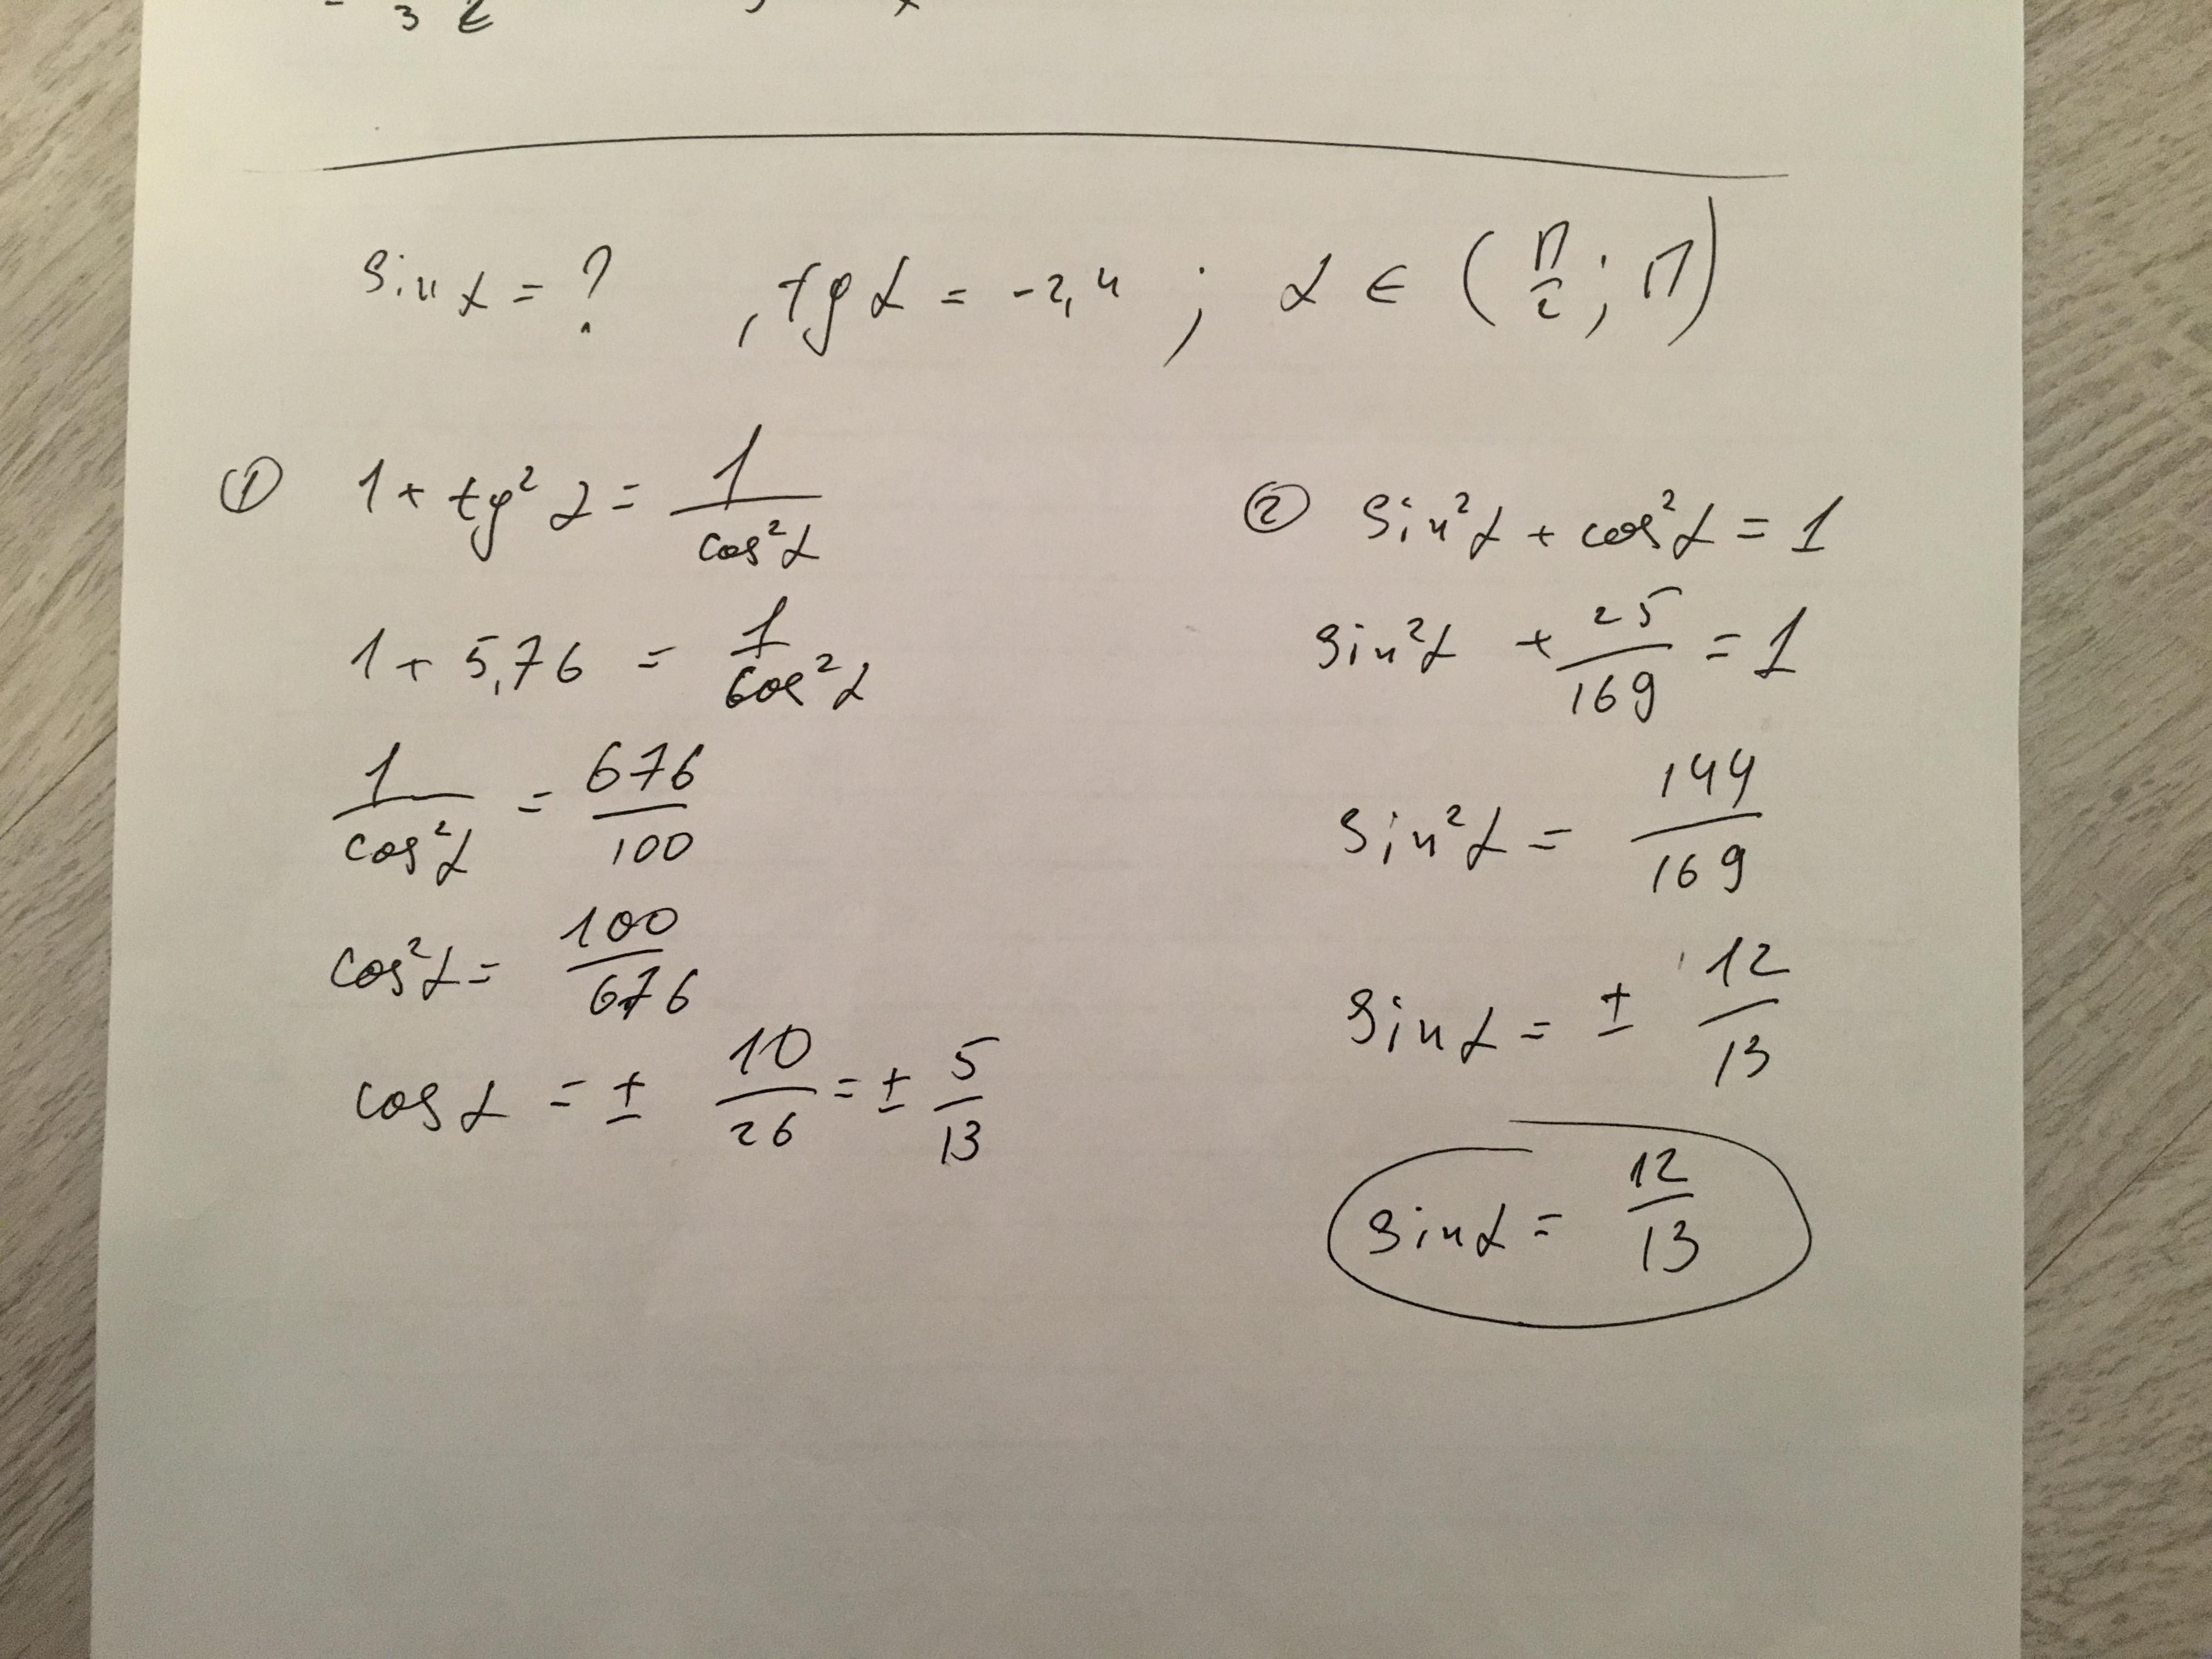 3 2
sin α = ? , tg α = -2,4 ; α ∈ (π/2 ; π)
① 1 + tg² α = 1/cos² α
1 + 5,76 = 1/cos² α
1/cos² α = 676/100
cos² α = 100/676
cos α = ± 10/26 = ± 5/13
② sin² α + cos² α = 1
sin² α + 25/169 = 1
sin² α = 144/169
sin α = ± 12/13
sin α = 12/13